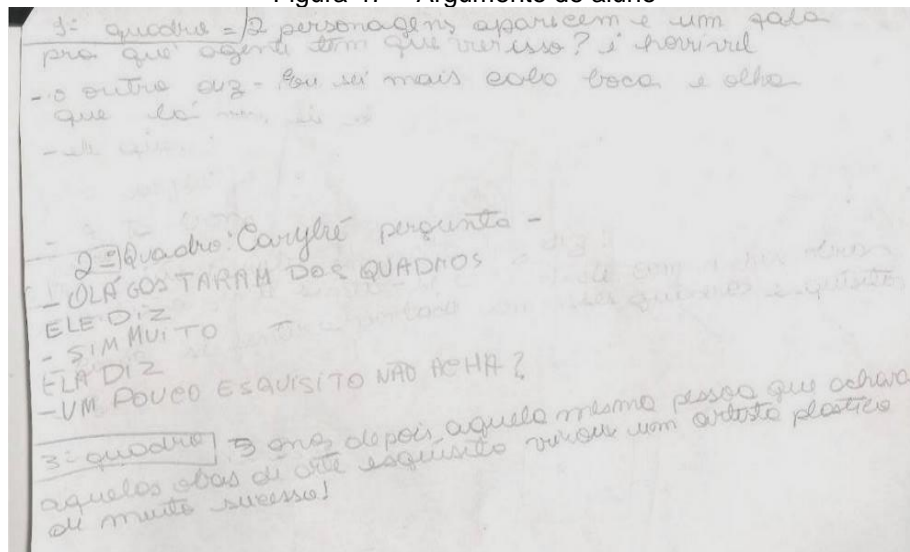 Figura 47 - Argumento do aluno
1º quadro = 2 personagens aparecem e um fala
pra que agente tem que ver isso? é horrivel
- o outro diz - Eu sei mais cala boca e olha
que lá
2º Quadro: Carybé pergunta -
- OLÁ GOSTARAM DOS QUADROS
ELE DIZ
- SIM MUITO
ELA DIZ
- UM POUCO ESQUISITO NÃO ACHA?
3º quadro 5 anos depois, aquela mesma pessoa que achava
aquelas obas de arte esquisito virou um artista plastico
de muito sucesso!